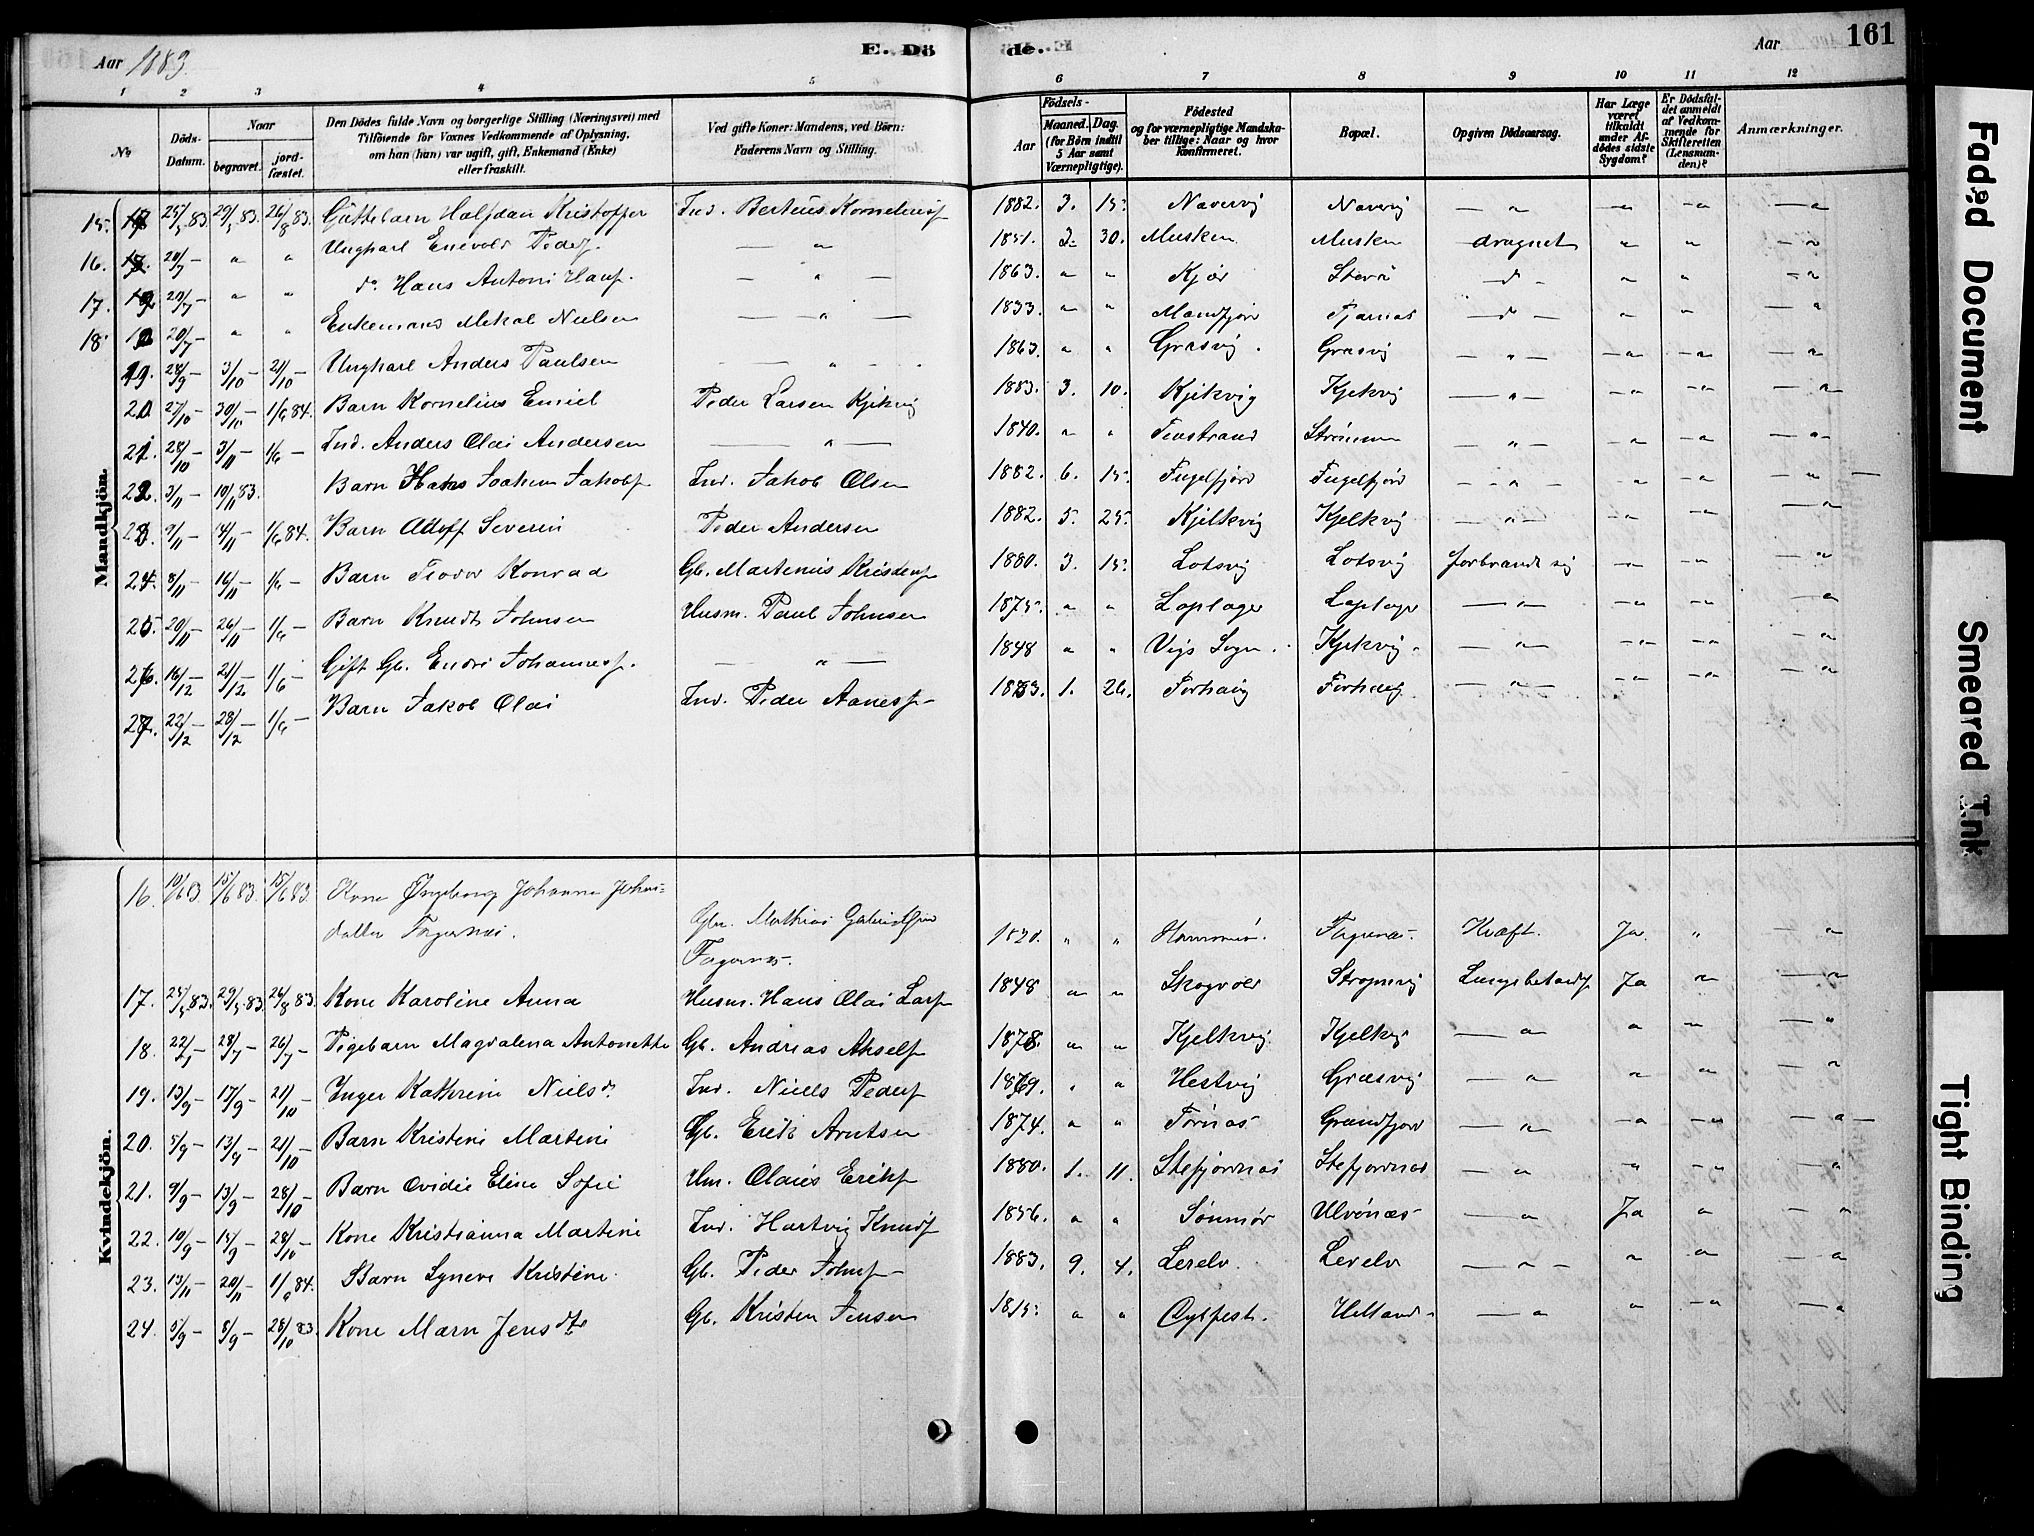 Aar 1883.
E. Dö
de.
Aar
161
1 2 3 4 5 6 7 8 9 10 11 12
No
Döds-Datum.
Naar
begravet.
jord-fæstet.
Den Dödes fulde Navn og borgerlige Stilling (Næringsvei) med
Tilföiende for Voxnes Vedkommende af Oplysning,
om han (hun) var ugift, gift, Enkemand (Enke)
eller fraskilt.
Ved gifte Koner: Mandens, ved Börn:
Faderens Navn og Stilling.
Födsels-
Aar
Maaned. Dag.
(for Börn indtil
5 Aar samt
Værnepligtige).
Födested
og for værnepligtige Mandska-
ber tillige: Naar og hvor
konfirmeret.
Bopæl.
Opgiven Dödsaarsag.
Har Læge
været
tilkaldt
under Af-
dödes sidste
Sygdom?
Er Dödsfal-
det anmeldt
af Vedkom-
mende for
Skifteretten
(Lensman-
den)?
Anmærkninger.
Mandkjön.
15. 25/5 83. 29/5 83. 26/8 83. Guttebarn Halfdan Kristoffer Ind. Berteus Kornelius 1882. 3. 15. Navervig Navervig — " — " — " — "
16. 20/7 — " " Ungkarl Enevold Peders. — " 1851. 3. 30. Musken Musken druknet " " — "
17. 20/7 — " " do Hans Antoni Hans. — " — 1863. " " Kjær Stevå — do — " " — "
18. 20/7 — " " Enkemand Mikal Nielsen — " — 1833. " " Mandfjord Tjærnæs — do — " " — "
19. 28/9 — 3/10 — 21/10 — Ungkarl Anders Paulsen — " 1863. " " Græsvig. Græsvig — " — — " — " — "
20. 27/10 — 30/10 — 1/6 84. Barn Kornelius Emiel Peder Larsen Kjelkvig 1883. 3. 10. Kjelkvig Kjelkvig — " — — " — " — "
21. 28/10 — 3/11 — 1/6 — Ind. Anders Olai Andersen — " — 1840. " " Finstrand Strømmen — " — — " — " — "
22. 3/11 — 10/11 83. Barn Hans Joakim Jakobs. Ind. Jakob Olsen 1882. 6. 15. Fugelfjord Fugelfjord — " — " — " — " —
23. 9/11 — 14/11 — 1/6 84. Barn Adolf Severin Peder Andersen 1882. 5. 25. Kjelkvig Kjelkvig — " — — " — " — "
24. 8/11 — 16/11 — 1/6 — Barn Teodor Konrad Gb. Martenius Kristens. 1880. 3. 15. Lotsvig Lotsvig forbrændt sig — " — " — "
25. 20/11 — 26/11 — 1/6 — Barn Knudt Johnsen Husm. Paul Johnsen 1875. " " Laplager Laplager — " — — " — " — "
26. 16/12 — 21/12 — 1/6 — Gift Gb. Endre Johannes. — " — 1848 " " Vigs Sogn. Kjelkvig. — " — — " — " — "
27. 22/12 — 28/12 — 1/6 — Barn Jakob Olai Ind. Peder Aanes. 1883. 1. 26. Forhavig Forhavig — " — — " — " — "
Kvindekjön.
16. 10/6 83 15/6 83. 15/6 83. Kone Ingeborg Johanna Johns-
datter Fagernæs. Gbr. Mathias Gabrielsen
Fagernæs. 1820. " " Hammerø. Fagernæs. Kræft. Ja. " — "
17. 25/5 83. 29/5 83. 26/8 83. Kone Karoline Anna Husm. Hans Olai Lars. 1848 " " Skogvoll Stropsvig Lungebetænd. Ja " — "
18. 22/7 — 28/7 — 26/7 — Pigebarn Magdalena Antonette Gb. Andrias Aksels. 1878. " " Kjelkvig Kjelkvig — " " — " — "
19. 13/9 — 17/9 — 21/10 — Inger Kathrine Nielsd. Ind. Niels Peders. 1869. " " Hestvig Græsvig — " " " — "
20. 5/9 — 13/9 — 21/10 — Barn Kristine Martine Gb. Erik Arntsen 1874. " " Tørnæs Grundfjord — " — " — " — " —
21. 9/9 — 13/9 — 28/10 — Barn Ovidie Elise Sofie Hm. Olaies Eriks. 1880. 1. 11. Stefjordnæs Stefjordnæs — " — " — " — "
22. 10/9 — 15/9 — 28/10 — Kone Kristianna Martine Ind. Hartvig Knuds. 1856. " " Sønmør Ulvønæs — " Ja " — "
23. 13/11 — 20/11 — 1/6 84. Barn Syneve Kristine. Gb. Peder Johns. 1883. 9. 4. Lerelv. Lerelv — " — " — " — "
24. 5/9 — 8/9 — 28/10 83. Kone Marn Jensdtr. Gb. Kristen Jensen 1815. " " Helland — " " — " — "
Faded Document
Smeared Ink
Tight Binding